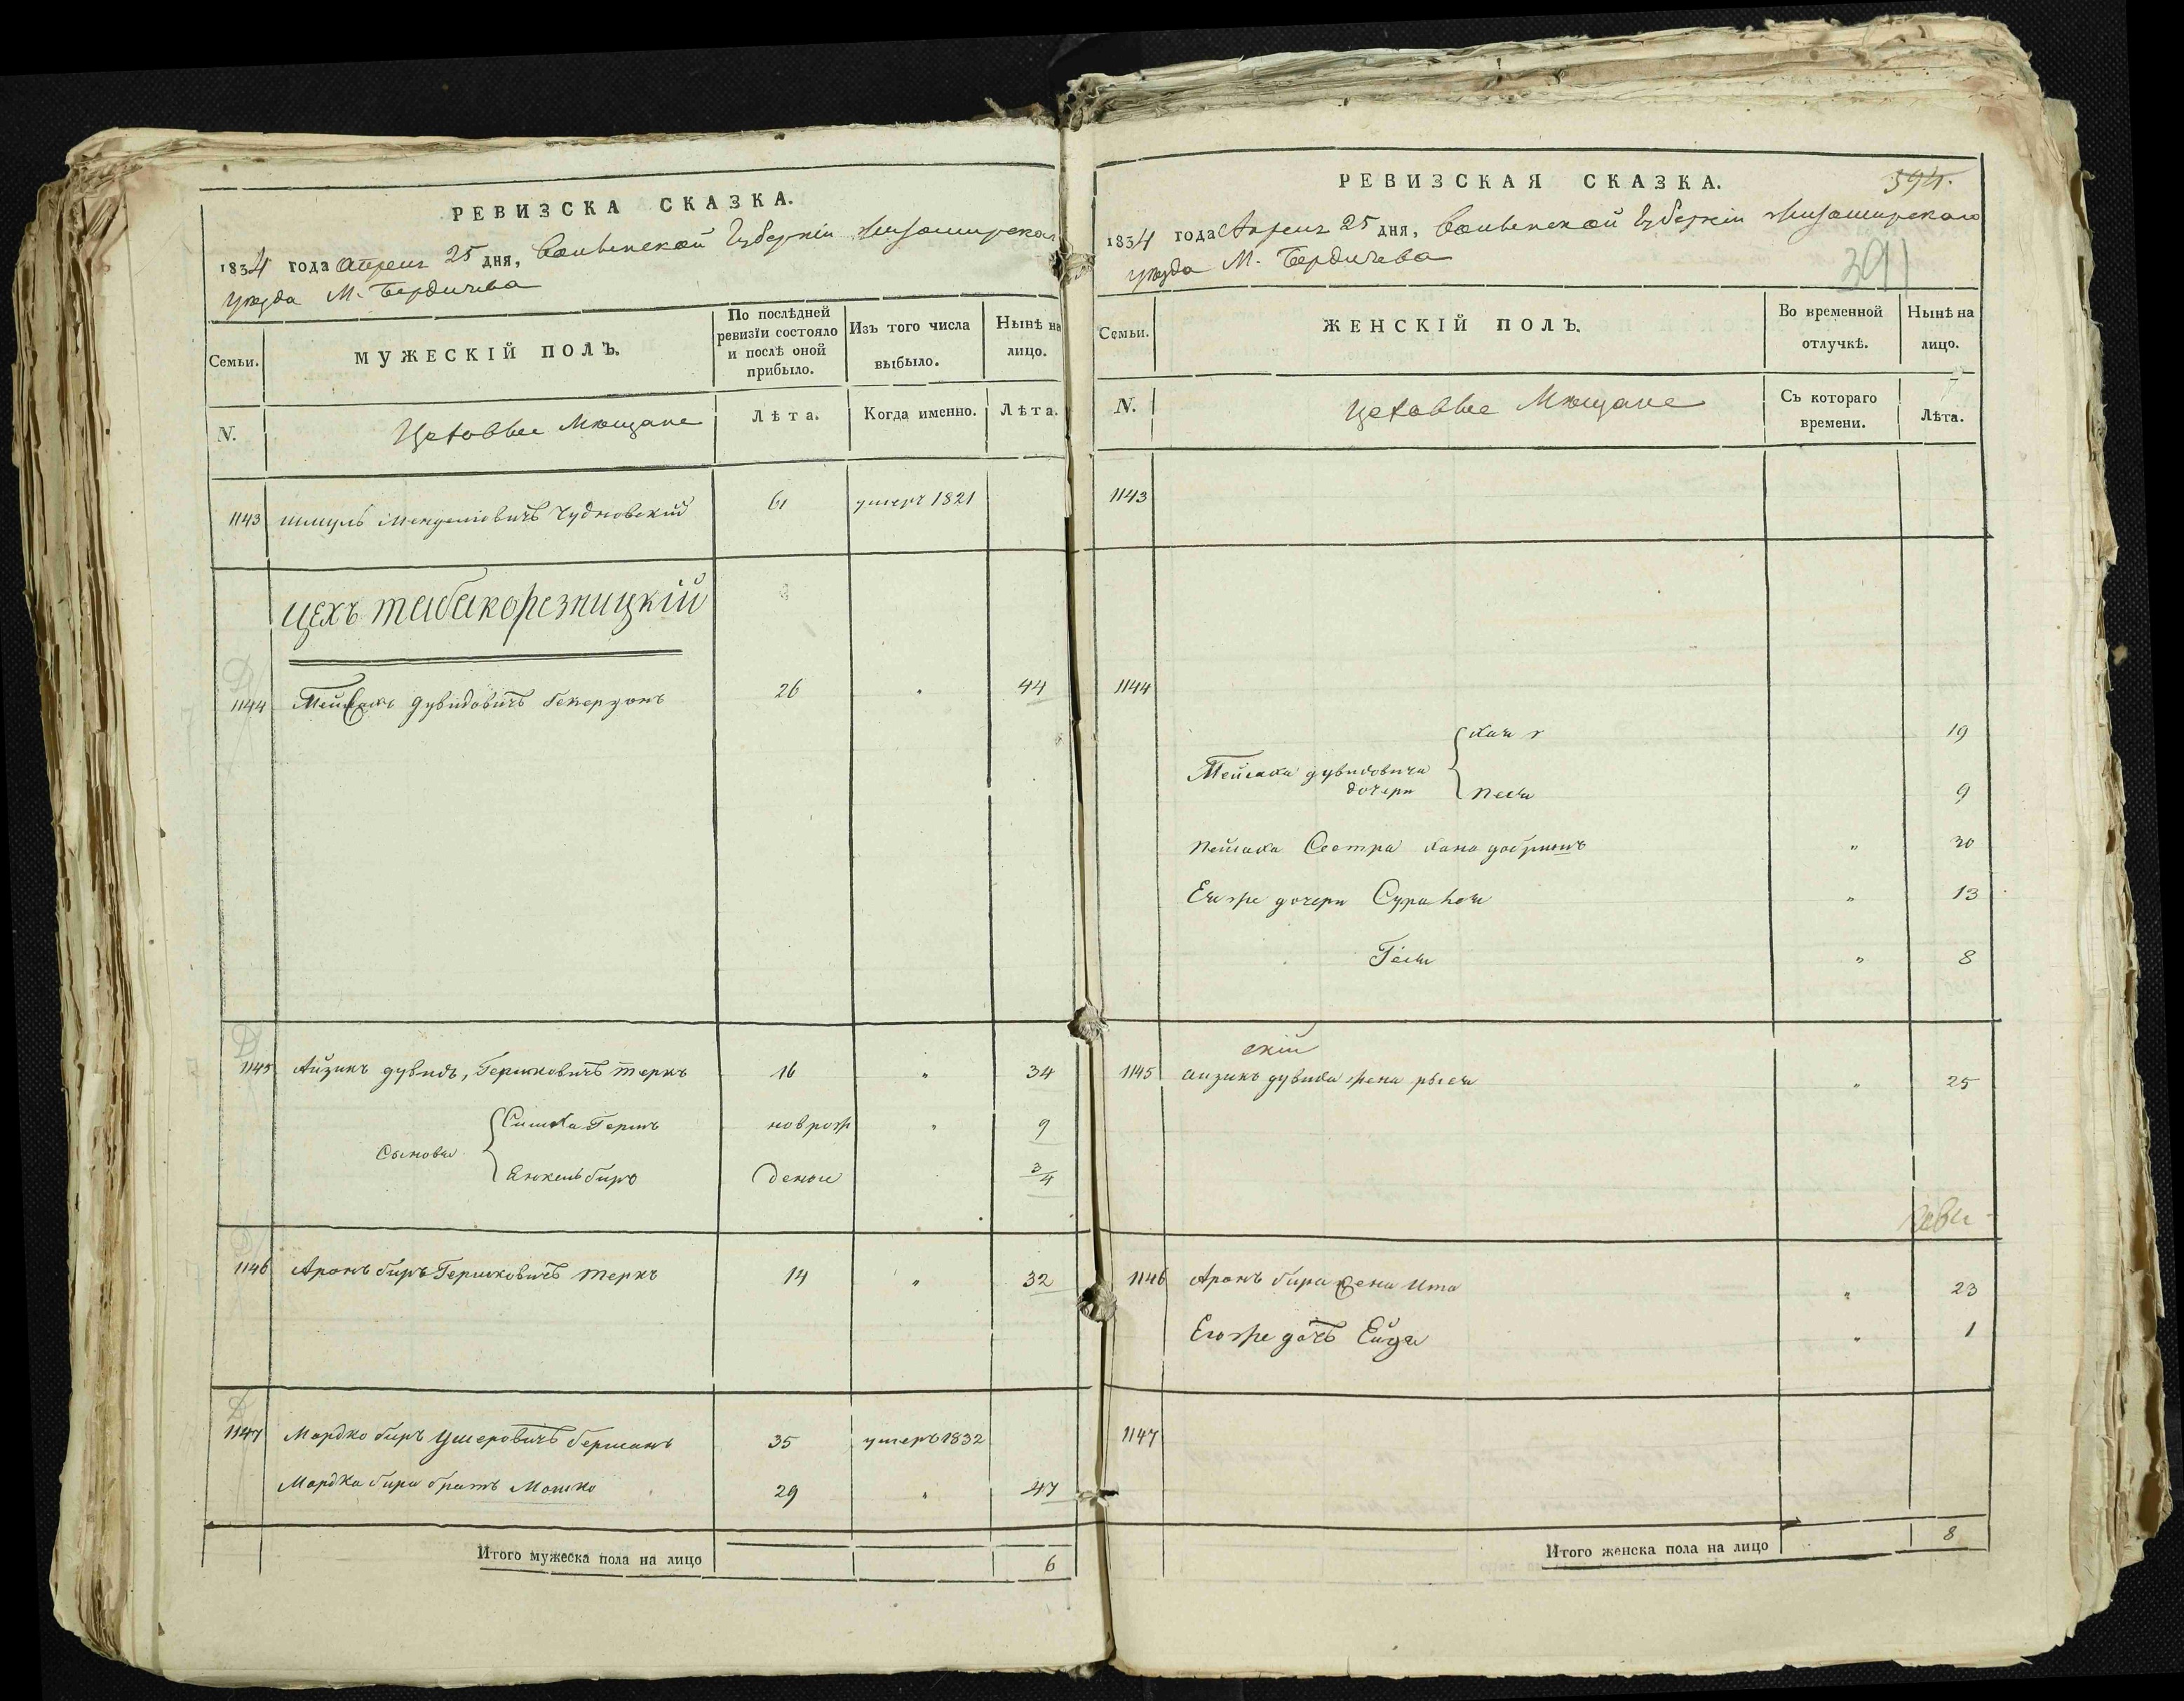 РЕВИЗСКА СКАЗКА.
1834 года Апреля 25 дня, Волынской Губерніи Житомирскаго
уезда М. Бердичева
Семьи.
МУЖЕСКІЙ ПОЛЪ.
По послѣдней ревизіи состояло и послѣ оной прибыло.
Изъ того числа выбыло.
Нынѣ на лицо.
N.
Цеховые Мѣщане
Лѣта.
Когда именно.
Лѣта.
1143 Шмуль Менделіовичъ Чудновскій 61 умеръ 1821
цехъ табакорезницкій
1144 Дувидовичъ 26 44
1145 Айзикъ дувидъ, Гершковичъ теркъ 16 " 34
Сыновья
Симха Гершъ новрож " 9
Янкель биръ 3/4
1146 Аронъ биръ Гершковичъ теркъ 14 " 32
1147 Мордко биръ Ушеровичъ берманъ 35 умеръ 1832
Мордка бира братъ Мошко 29 " 47
Итого мужеска пола на лицо 6
РЕВИЗСКАЯ СКАЗКА.
394.
1834 года Апреля 25 дня, Волынской Губерніи Житомирскаго
391
уезда М. Бердичева
Семьи.
ЖЕНСКІЙ ПОЛЪ.
Во временной отлучкѣ.
Нынѣ на лицо.
N.
Цеховые Мѣщане
Съ котораго времени.
Лѣта.
1143
1144
19
дувидовича
дочери
Песя 9
Сестра хана 30
Ея же дочери Сура 13
Гися " 8
1145 Айзикъ дувида жена рыся " 25
1146 Аронъ бира жена Ита " 23
Его же дочъ Ейдя " 1
1147
Итого женска пола на лицо 8